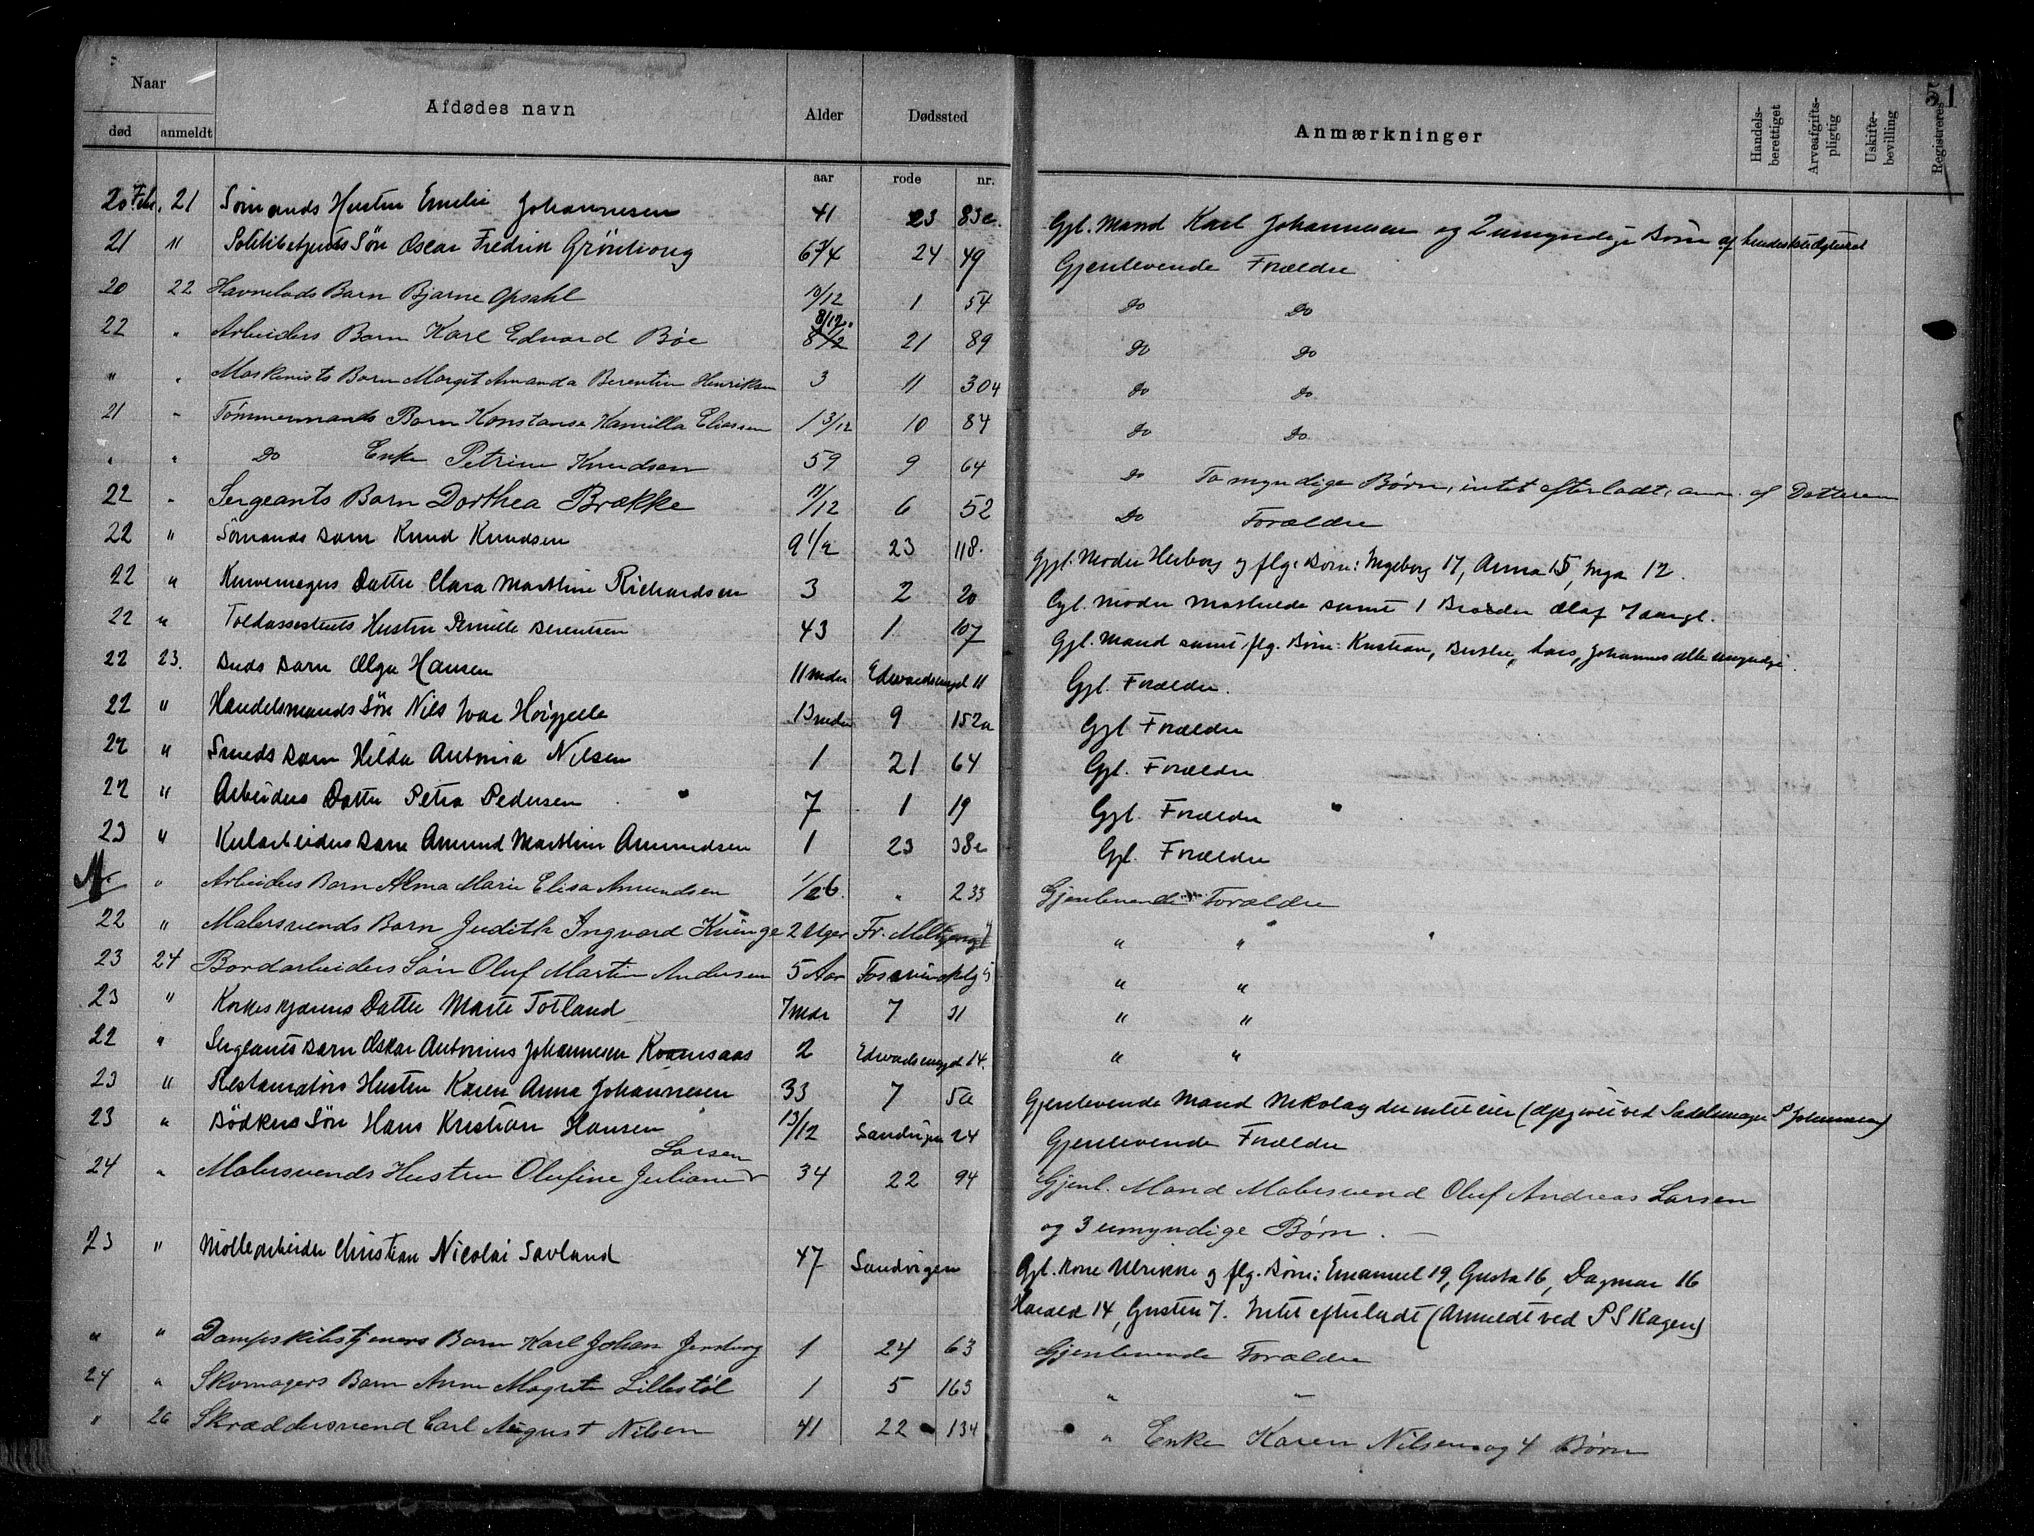 51
Naar
Afdødes navn
Alder
Dødssted
Anmærkninger
Handels-berettiget
Arveafgifts-pligtig
Uskifte-bevilling
Registreres
død anmeldt
aar rode nr.
20 Febr. 21 Sømands Hustru Emelie Johannesen 41 23 83c. Gjl. Mand Karl Johannesen og 2 umyndige Børn af
21 " Søn Oscar Fredrik 24 49 Gjenlevende Forældre
20 22 Barn Bjarne Opsahl 10/12 1 54 Do Do
22 " Arbeiders Barn Karl Edvard Bøe 8/12 21 89 Do Do
" " Maskinists Barn Margit Amanda Berentine Henriksen 3 11 304 Do Do
21 " Tømmermands Barn Konstanse Kamilla Eliassen 1 3/12 10 84 Do Do
" " Do Enke Petrine Knudsen 59 9 64 Do To myndige Børn, intet efterladt, anm. af Datteren
22 " Sergeants Barn Dorthea Brække 11/12 6 52 Do Forældre
22 " Sømands Barn Knud Knudsen 9 1/2 23 118. Gjl. Moder Herborg og flg. Børn: Ingeborg 17, Anna 15, Inga 12.
22 " Kurvemagers Datter Clara Marthine Richardsen 3 2 20 Gjl. Moder Mathilde samt 1 Broder Olaf 7 aargl.
22 " Toldassistents Hustru Pernille Berentsen 43 1 107 Gjl. Mand samt flg. Børn: Kristian, Berthe, Lars, Johannes alle umyndige.
22 23. Buds Barn Olga Hansen 11 mdr Edvardsensgd 11 Gjl. Forældre.
22 " Handelsmands Søn Nils Ivar 13 mdr 9 152a Gjl Forældre
22 " Smeds Barn Hilda Antonia Nilsen 1 21 64 Gjl. Forældre
22 " Arbeiders Datter Petra Pedersen 7 1 19 Gjl. Forældre
23 " Kularbeiders Barn Amund Marthin Amundsen 1 23 38c Gjl. Forældre
" Arbeiders Barn Alma Marie Elisa Amundsen 1/26. " 233 Gjenlevende Forældre
22 " Malersvends Barn Judith Ingvard Kvinge 2 Uger Fr. " "
23 24 Bordarbeiders Søn Oluf Martin Andersen 5 Aar 5 " "
23 " Datter Marte Totland 7 mdr 7 31 " "
22 " Sergeants Barn Oskar Antonius Johannesen Kvamsaas 2 Edvardsensgd 14. " "
23 " Restauratørs Hustru Karen Anna Johannesen 33 7 5a Gjenlevende Mand Nikolay der intet eier (Opgivet ved Sadelmager P Johannesen)
23 " Bødkers Søn Hans Kristian Hansen 13/12 Sandvigen 24 Gjenlevende Forældre
Larsen
24 " Malersvends Hustru Olufine Juliane 34 22 94 Gjenl. Mand Malersvend Oluf Andreas Larsen
og 3 umyndige Børn. —
23 " Møllearbeider Christian Nicolai Savland 47 Sandvigen Gjl. Kone Ulrikke og flg. Børn: Emanuel 19, Gusta 16, Dagmar 16
Harald 14, Gusten 7. Intet efterladt (Anmeldt ved P S Kagen)
" " Dampskibstjeners Barn Karl Johan 1 24 63 Gjenlevende Forældre
24 " Skomagers Barn Anne Magrete Lillestøl 1 5 163 " "
" 26 Skræddersvend Carl August Nilsen 41 22 134 " Enke Karen Nilsen og 4 Børn